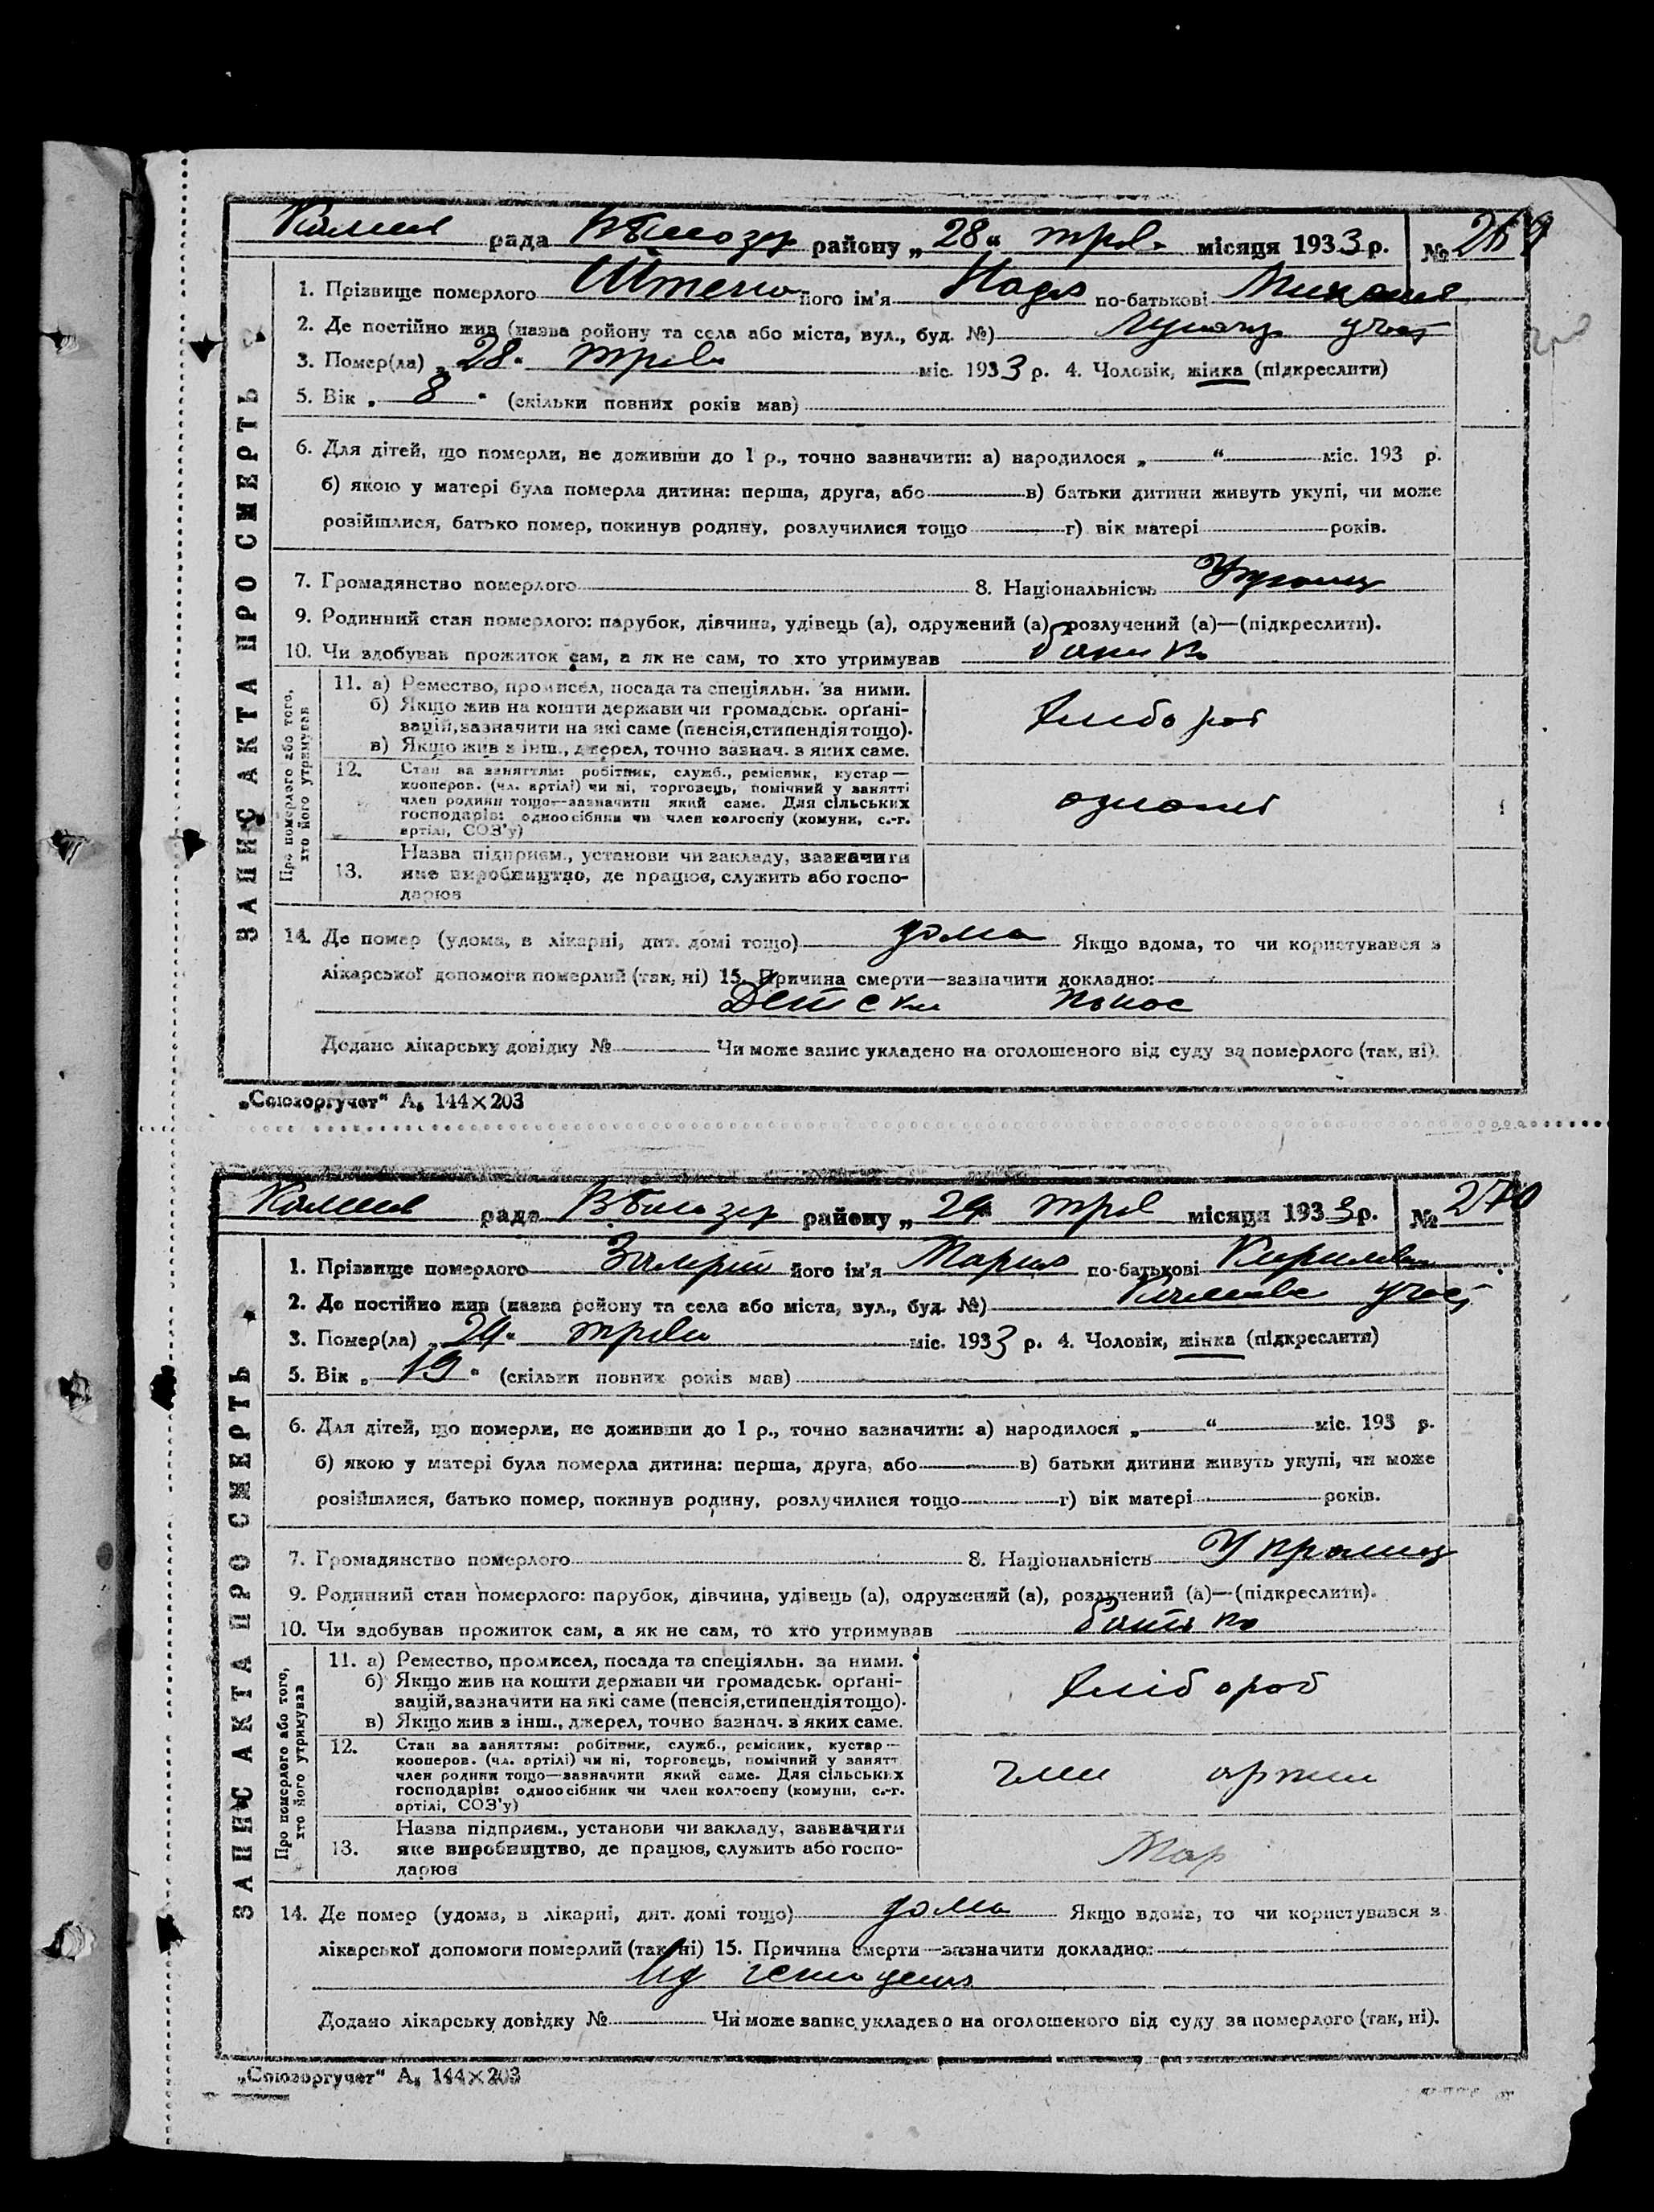 рада В Білозер району „28“ трав. місяця 1933 р. № 269
1. Прізвище померлого його ім'я Надя по-батькові
2. Де постійно жив (назва району та села або міста, вул., буд. №)
3. Помер(ла) „28“ трав міс. 1933 р. 4. Чоловік, жінка (підкреслити)
5. Вік „ 8 “ (скільки повних років мав)
6. Для дітей, що померли, не доживши до 1 р., точно зазначити: а) народилося „ “ міс. 193 р.
б) якою у матері була померла дитина: перша, друга, або в) батьки дитини живуть укупі, чи може
розійшлися, батько помер, покинув родину, розлучилися тощо г) вік матері років.
7. Громадянство померлого 8. Національність Украинц
9. Родинний стан померлого: парубок, дівчина, удівець (а), одружений (а), розлучений (а)—(підкреслити).
10. Чи здобував прожиток сам, а як не сам, то хто утримував батько
ЗАПИС АКТА ПРО СМЕРТЬ
Про померлого або того,
хто його утримував
11. а) Ремество, промисел, посада та спеціяльн. за ними.
б) Якщо жив на кошти держави чи громадськ. орґані-
зацій, зазначити на які саме (пенсія, стипендія тощо).
в) Якщо жив з інш., джерел, точно зазнач. з яких саме.
хлебороб
12. Стан за заняттям: робітник, служб., ремісник, кустар—
кооперов. (чл. артілі) чи ні, торговець, помічний у занятті
член родини тощо—зазначити який саме. Для сільських
господарів: одноосібник чи член колгоспу (комуни, с.-г.
артілі, СОЗ'у)
13. Назва підприєм., установи чи закладу, зазначити
яке виробництво, де працює, служить або госпо-
дарює
14. Де помер (удома, в лікарні, дит. домі тощо) дома Якщо вдома, то чи користувався з
лікарської допомоги померлий (так, ні) 15. Причина смерти—зазначити докладно:
Детски понос
Додано лікарську довідку № Чи може запис укладено на оголошеного від суду за померлого (так, ні).
„Союзоргучет“ А₅ 144×203
рада В Білозер району „29“ трав місяця 1933 р. № 270
1. Прізвище померлого його ім'я Мария по-батькові Кирилов
2. Де постійно жив (назва району та села або міста, вул., буд. №)
3. Помер(ла) „29“ трав міс. 1933 р. 4. Чоловік, жінка (підкреслити)
5. Вік „ 19 “ (скільки повних років мав)
6. Для дітей, що померли, не доживши до 1 р., точно зазначити: а) народилося „ “ міс. 193 р.
б) якою у матері була померла дитина: перша, друга, або в) батьки дитини живуть укупі, чи може
розійшлися, батько помер, покинув родину, розлучилися тощо г) вік матері років.
7. Громадянство померлого 8. Національність Украинц
9. Родинний стан померлого: парубок, дівчина, удівець (а), одружений (а), розлучений (а)—(підкреслити).
10. Чи здобував прожиток сам, а як не сам, то хто утримував батько
ЗАПИС АКТА ПРО СМЕРТЬ
Про померлого або того,
хто його утримував
11. а) Ремество, промисел, посада та спеціяльн. за ними.
б) Якщо жив на кошти держави чи громадськ. орґані-
зацій, зазначити на які саме (пенсія, стипендія тощо).
в) Якщо жив з інш., джерел, точно зазнач. з яких саме.
хлібороб
12. Стан за заняттям: робітник, служб., ремісник, кустар—
кооперов. (чл. артілі) чи ні, торговець, помічний у занятт
член родини тощо—зазначити який саме. Для сільських
господарів: одноосібник чи член колгоспу (комуни, с.-г.
артілі, СОЗ'у)
член артил
13. Назва підприєм., установи чи закладу, зазначити
яке виробництво, де працює, служить або госпо-
дарює
14. Де помер (удома, в лікарні, дит. домі тощо) дома Якщо вдома, то чи користувався з
лікарської допомоги померлий (так, ні) 15. Причина смерти—зазначити докладно:
Додано лікарську довідку № Чи може запис укладено на оголошеного від суду за померлого (так, ні).
„Союзоргучет“ А₅ 144×203